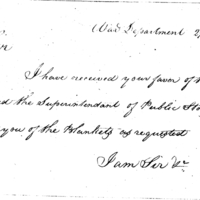 War Department
I have received your favor of
the Superintendant of Public
you of the Blankets as requested
I am Sir &c